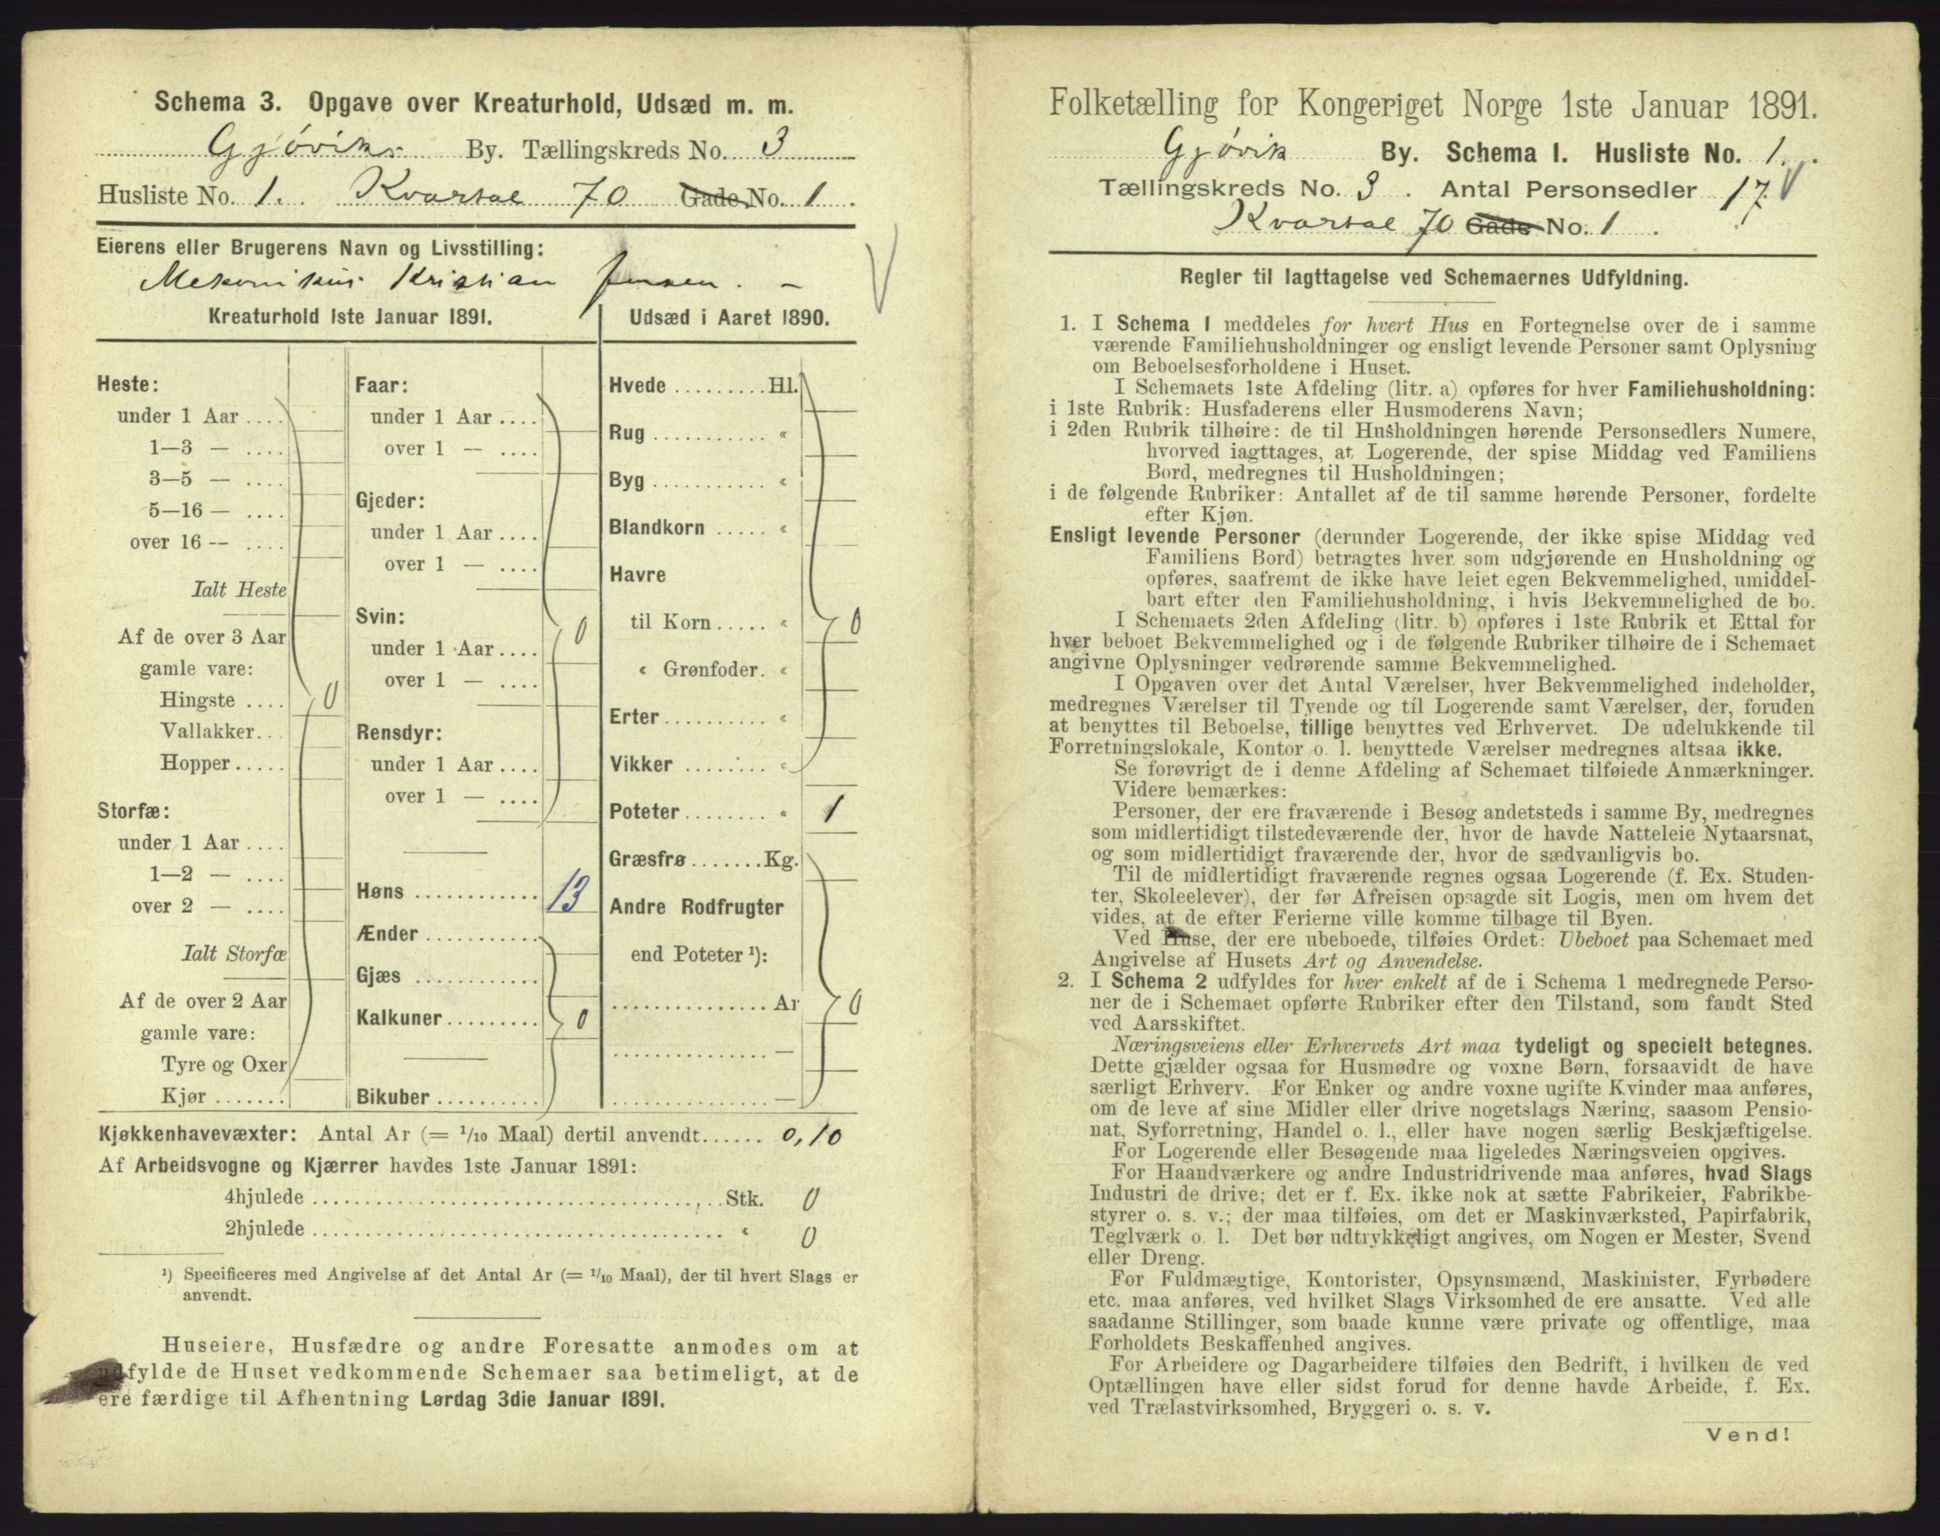 Schema 3. Opgave over Kreaturhold, Udsæd m. m.
Gjøviks By. Tællingskreds No. 3
Husliste No. 1. Kvartal 70 Gade No. 1.
Eierens eller Brugerens Navn og Livsstilling:
Mekanikus Kristian Jensen. –
Kreaturhold 1ste Januar 1891.
Heste:
under 1 Aar ....
1—3 — ....
3—5 — ....
5—16 — ....
over 16 -- ....
Ialt Heste
Af de over 3 Aar
gamle vare:
Hingste .... 0
Vallakker...
Hopper.....
Storfæ:
under 1 Aar ....
1—2 — ....
over 2 — ....
Ialt Storfæ
Af de over 2 Aar
gamle vare:
Tyre og Oxer
Kjør .......
Faar:
under 1 Aar ....
over 1 — ....
Gjeder:
under 1 Aar ....
over 1 — ....
Svin: 0
under 1 Aar ....
over 1 — ....
Rensdyr:
under 1 Aar ....
over 1 — ....
Høns ............ 13
Ænder ...........
Gjæs ............
Kalkuner ......... 0
Bikuber ..........
Udsæd i Aaret 1890.
Hvede ......... Hl.
Rug ........... «
Byg ........... «
Blandkorn ..... «
Havre
til Korn ..... « 0
« Grønfoder. «
Erter ......... «
Vikker ........ «
Poteter ........ « 1
Græsfrø ....... Kg.
Andre Rodfrugter
end Poteter ¹):
............... Ar 0
............... —
............... —
Kjøkkenhavevæxter: Antal Ar (= 1/10 Maal) dertil anvendt...... 0,10
Af Arbeidsvogne og Kjærrer havdes 1ste Januar 1891:
4hjulede ........................................ Stk. 0
2hjulede ........................................ « 0
¹) Specificeres med Angivelse af det Antal Ar (= 1/10 Maal), der til hvert Slags er
anvendt.
Huseiere, Husfædre og andre Foresatte anmodes om at
udfylde de Huset vedkommende Schemaer saa betimeligt, at de
ere færdige til Afhentning Lørdag 3die Januar 1891.
Folketælling for Kongeriget Norge 1ste Januar 1891.
Gjøvik By. Schema I. Husliste No. 1.
Tællingskreds No. 3. Antal Personsedler 17.
Kvartal 70 Gade No. 1.
Regler til Iagttagelse ved Schemaernes Udfyldning.
1. I Schema I meddeles for hvert Hus en Fortegnelse over de i samme
værende Familiehusholdninger og ensligt levende Personer samt Oplysning
om Beboelsesforholdene i Huset.
I Schemaets 1ste Afdeling (litr. a) opføres for hver Familiehusholdning:
i 1ste Rubrik: Husfaderens eller Husmoderens Navn;
i 2den Rubrik tilhøire: de til Husholdningen hørende Personsedlers Numere,
hvorved iagttages, at Logerende, der spise Middag ved Familiens
Bord, medregnes til Husholdningen;
i de følgende Rubriker: Antallet af de til samme hørende Personer, fordelte
efter Kjøn.
Ensligt levende Personer (derunder Logerende, der ikke spise Middag ved
Familiens Bord) betragtes hver som udgjørende en Husholdning og
opføres, saafremt de ikke have leiet egen Bekvemmelighed, umiddel-
bart efter den Familiehusholdning, i hvis Bekvemmelighed de bo.
I Schemaets 2den Afdeling (litr. b) opføres i 1ste Rubrik et Ettal for
hver beboet Bekvemmelighed og i de følgende Rubriker tilhøire de i Schemaet
angivne Oplysninger vedrørende samme Bekvemmelighed.
I Opgaven over det Antal Værelser, hver Bekvemmelighed indeholder,
medregnes Værelser til Tyende og til Logerende samt Værelser, der, foruden
at benyttes til Beboelse, tillige benyttes ved Erhvervet. De udelukkende til
Forretningslokale, Kontor o. l. benyttede Værelser medregnes altsaa ikke.
Se forøvrigt de i denne Afdeling af Schemaet tilføiede Anmærkninger.
Videre bemærkes:
Personer, der ere fraværende i Besøg andetsteds i samme By, medregnes
som midlertidigt tilstedeværende der, hvor de havde Natteleie Nytaarsnat,
og som midlertidigt fraværende der, hvor de sædvanligvis bo.
Til de midlertidigt fraværende regnes ogsaa Logerende (f. Ex. Studen-
ter, Skoleelever), der før Afreisen opsagde sit Logis, men om hvem det
vides, at de efter Ferierne ville komme tilbage til Byen.
Ved Huse, der ere ubeboede, tilføies Ordet: Ubeboet paa Schemaet med
Angivelse af Husets Art og Anvendelse.
2. I Schema 2 udfyldes for hver enkelt af de i Schema 1 medregnede Perso-
ner de i Schemaet opførte Rubriker efter den Tilstand, som fandt Sted
ved Aarsskiftet.
Næringsveiens eller Erhvervets Art maa tydeligt og specielt betegnes.
Dette gjælder ogsaa for Husmødre og voxne Børn, forsaavidt de have
særligt Erhverv. For Enker og andre voxne ugifte Kvinder maa anføres,
om de leve af sine Midler eller drive nogetslags Næring, saasom Pensio-
nat, Syforretning, Handel o. l., eller have nogen særlig Beskjæftigelse.
For Logerende eller Besøgende maa ligeledes Næringsveien opgives.
For Haandværkere og andre Industridrivende maa anføres, hvad Slags
Industri de drive; det er f. Ex. ikke nok at sætte Fabrikeier, Fabrikbe-
styrer o. s. v.; der maa tilføies, om det er Maskinværksted, Papirfabrik,
Teglværk o. l. Det bør udtrykkeligt angives, om Nogen er Mester, Svend
eller Dreng.
For Fuldmægtige, Kontorister, Opsynsmænd, Maskinister, Fyrbødere
etc. maa anføres, ved hvilket Slags Virksomhed de ere ansatte. Ved alle
saadanne Stillinger, som baade kunne være private og offentlige, maa
Forholdets Beskaffenhed angives.
For Arbeidere og Dagarbeidere tilføies den Bedrift, i hvilken de ved
Optællingen have eller sidst forud for denne havde Arbeide, f. Ex.
ved Trælastvirksomhed, Bryggeri o. s. v.
Vend!